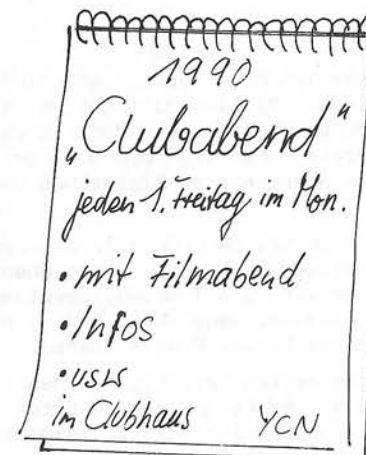 1990
„Clubabend“
jeden 1. Freitag im Mon.
• mit Filmabend
• Infos
• usw
im Clubhaus YCN